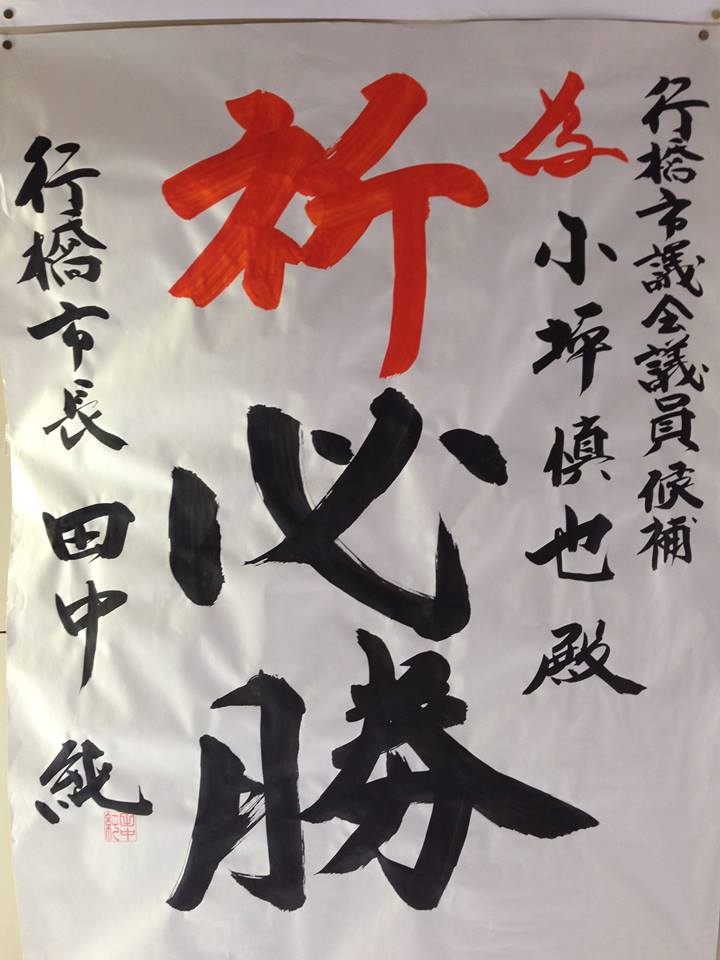 行橋市議会議員候補
為 小坪慎也殿
祈必勝
行橋市長 田中 純
田中純